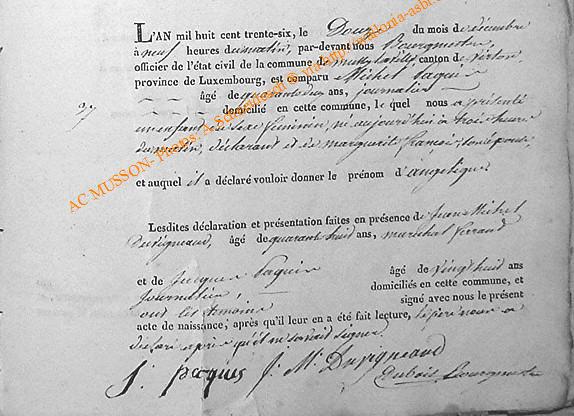 L'AN mil huit cent trente-six, le Douze du mois de décembre
à neuf heures du matin, par-devant nous Bourgmestre,
officier de l'état civil de la commune de mussy la ville canton de Virton,
province de Luxembourg, est comparu Michel Paquin
âgé de quarante deux ans, journalier
37 domicilié en cette commune, lequel nous a présenté
un enfant du sexe féminin, né aujourd'hui à trois heures
du matin, de lui déclarant et de marguerite françois, son épouse
et auquel il a déclaré vouloir donner le prénom d'angelique
Lesdites déclaration et présentation faites en présence de Jean Michel
Duvigneaud, âgé de quarante huit ans, marechal ferrand
et de Jacques Paquin âgé de vingt huit ans
journalier domiciliés en cette commune, et
ont les témoins signé avec nous le présent
acte de naissance, après qu'il leur en a été fait lecture, le père nous a
déclaré après qu'il ne savait signer
J. pacques J. M. Duvigneaud
Dubois Bourgmestre
AC MUSSON- Photos: A. via http://wallonia-asbl